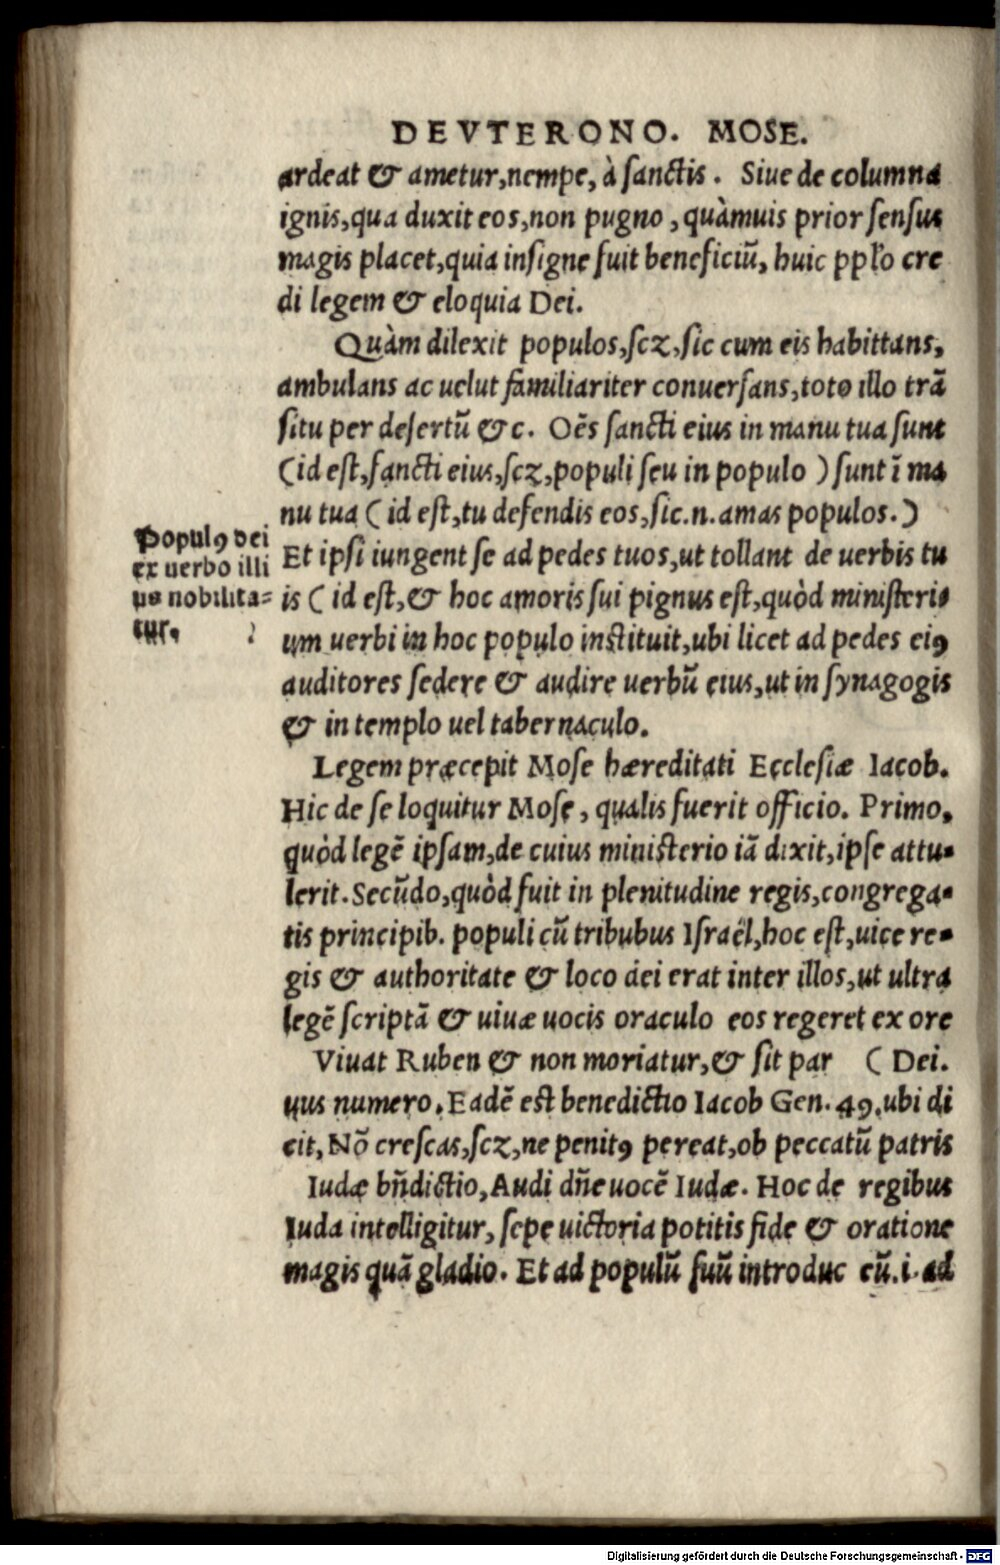 DEVTERONO. MOSE.
ardeat & ametur, nempe, à sanctis. Siue de columna
ignis, qua duxit eos, non pugno, quàmuis prior sensus
magis placet, quia insigne fuit beneficiũ, huic ppl'o cre
di legem & eloquia Dei.
Quàm dilexit populos, scz, sic cum eis habittans,
ambulans ac uelut familiariter conuersans, toto illo trã
situ per desertũ &c. Oẽs sancti eius in manu tua sunt
(id est, sancti eius, scz, populi seu in populo) sunt ĩ ma
nu tua (id est, tu defendis eos, sic.n. amas populos.)
Et ipsi iungent se ad pedes tuos, ut tollant de uerbis tu
is (id est, & hoc amoris sui pignus est, quòd ministeri
um uerbi in hoc populo instituit, ubi licet ad pedes eiꝰ
auditores sedere & audire uerbũ eius, ut in synagogis
& in templo uel tabernaculo.
Populꝰ dei
ex uerbo illi
us nobilita=
tur.
Legem præcepit Mose hæreditati Ecclesiæ Iacob.
Hic de se loquitur Mose, qualis fuerit officio. Primo,
quòd legẽ ipsam, de cuius ministerio iã dixit, ipse attu-
lerit. Secũdo, quòd fuit in plenitudine regis, congrega-
tis principib. populi cũ tribubus Israël, hoc est, uice re-
gis & authoritate & loco dei erat inter illos, ut ultra
legẽ scriptã & uiuæ uocis oraculo eos regeret ex ore
Viuat Ruben & non moriatur, & sit par (Dei.
uus numero. Eadẽ est benedictio Iacob Gen. 49. ubi di
cit, Nõ crescas, scz, ne penitꝰ pereat, ob peccatũ patris
Iudæ bñdictio, Audi dñe uocẽ Iudæ. Hoc de regibus
Iuda intelligitur, sepe uictoria potitis fide & oratione
magis quã gladio. Et ad populũ suũ introduc eũ.i. ad
Digitalisierung gefördert durch die Deutsche Forschungsgemeinschaft - DFG